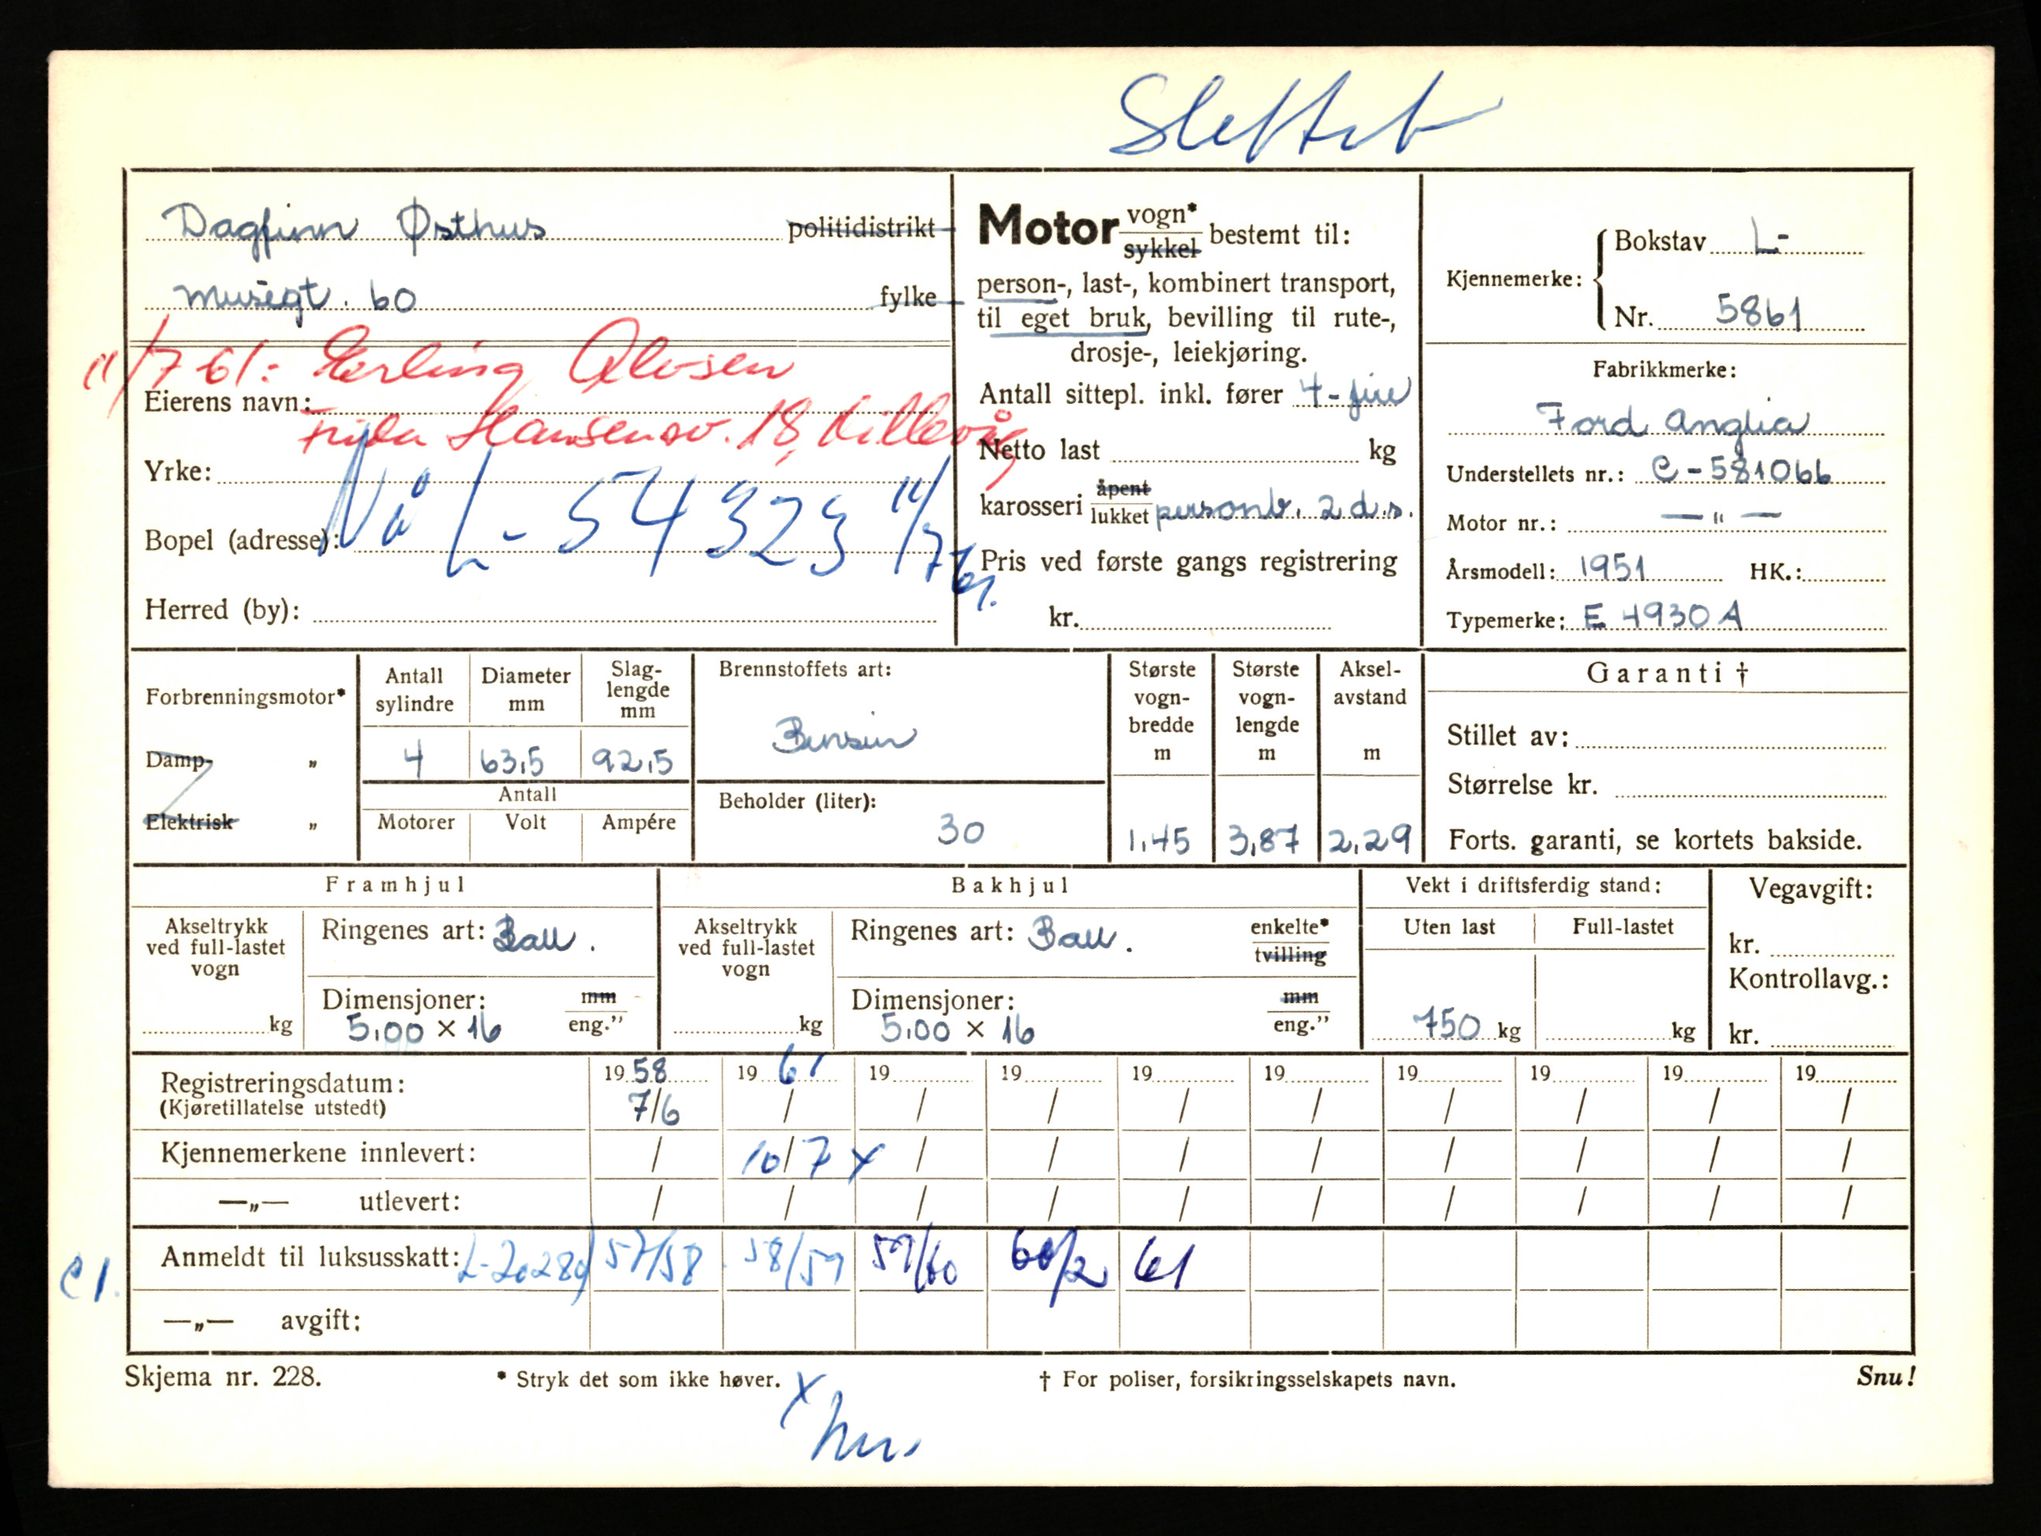 Slettet
Dagfinn Østhus politidistrikt
musegt. 60 fylke
11/7-61: Erling Olvsen
Eierens navn:
Frida Hansensv. 18, Hillevåg
Yrke:
Nå L-54323 11/7 61.
Bopel (adresse):
Herred (by):
Motor vogn* sykkel bestemt til:
person-, last-, kombinert transport,
til eget bruk, bevilling til rute-,
drosje-, leiekjøring.
Antall sittepl. inkl. fører 4-fire
Netto last kg
karosseri åpent lukket personb. 2 d.s.
Pris ved første gangs registrering
kr.
Kjennemerke: Bokstav L-
Nr. 5861
Fabrikkmerke:
Ford Anglia
Understellets nr.: C-581066
Motor nr.: — " —
Årsmodell: 1951 HK.:
Typemerke: E 4930 A
Forbrenningsmotor*
Damp- „
Elektrisk „
Antall sylindre Diameter mm Slag-lengde mm
4 63,5 92,5
Antall
Motorer Volt Ampére
Brennstoffets art:
Bensin
Beholder (liter):
30
Største vogn-bredde m Største vogn-lengde m Aksel-avstand m
1,45 3,87 2,29
Garanti †
Stillet av:
Størrelse kr.
Forts. garanti, se kortets bakside.
Framhjul
Akseltrykk ved full-lastet vogn
kg
Ringenes art: Ball.
Dimensjoner: mm
5,00 × 16 eng.”
Bakhjul
Akseltrykk ved full-lastet vogn
kg
Ringenes art: Ball. enkelte* tvilling
Dimensjoner: mm
5,00 × 16 eng.”
Vekt i driftsferdig stand:
Uten last Full-lastet
750 kg kg
Vegavgift:
kr.
Kontrollavg.:
kr.
Registreringsdatum: 19 58 19 61 19 19 19 19 19 19 19 19
(Kjøretillatelse utstedt) 7/6 / / / / / / / / /
Kjennemerkene innlevert: / 10/7 x / / / / / / / /
—„— utlevert: / / / / / / / / / /
Anmeldt til luksusskatt: L-20289 57/58 58/59 59/60 60/2 61
C 1.
—„— avgift:
Skjema nr. 228. * Stryk det som ikke høver. † For poliser, forsikringsselskapets navn. Snu!
x